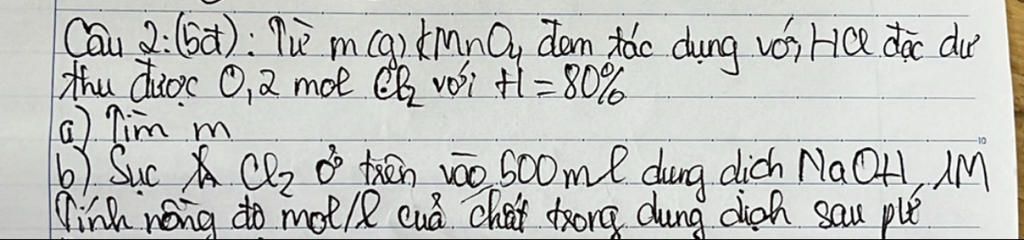 Câu 2:(5đ): Từ m (g) KMnO4 đem tác dụng với HCl đặc dư
thu được 0,2 mol Cl2 với H=80%
a) Tìm m
b) Sục Cl2 ở trên vào 500ml dung dịch NaOH 1M
Tính nồng độ mol/l cuả chất trong dung dịch sau pư
10